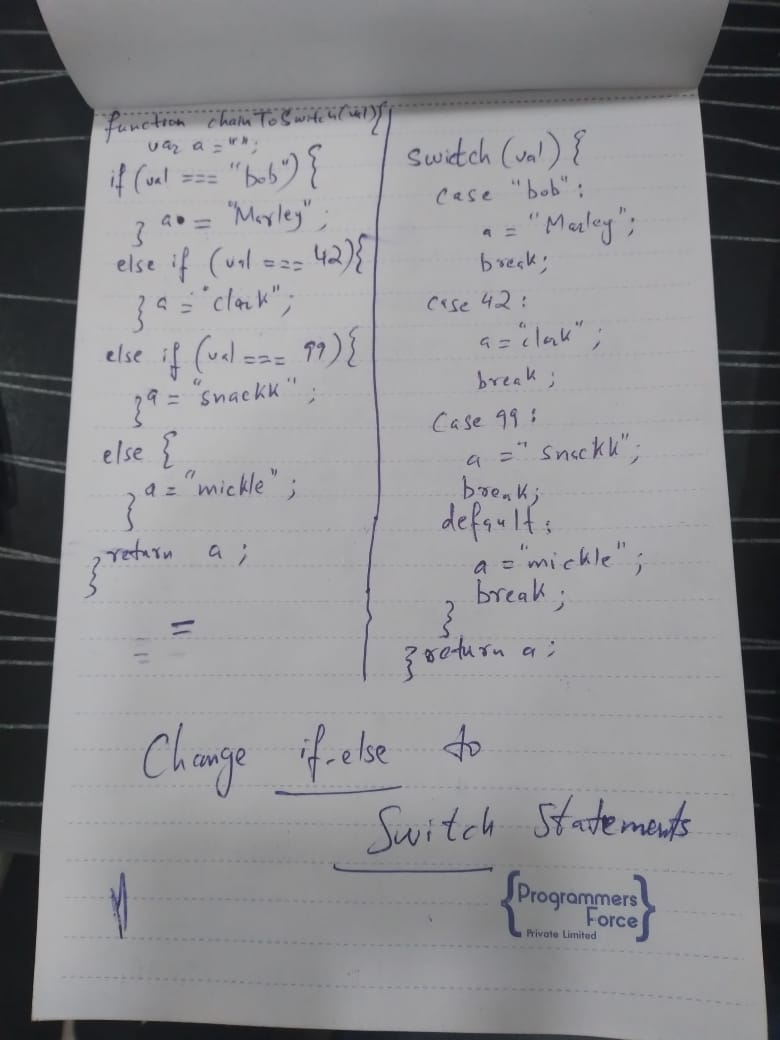 function chainToSwitch(val){
var a = "";
if (val === "bob") {
a = "Marley";
}
else if (val === 42){
a = "clark";
}
else if (val === 99){
a = "snackk";
}
else {
a = "mickle";
}
return a;
}
=
=
switch (val) {
case "bob":
a = "Marley";
break;
case 42:
a = "clark";
break;
Case 99:
a = "snackk";
break;
default:
a = "mickle";
break;
}
} return a;
Change if-else to
Switch Statements
{Programmers
Force}
Private Limited